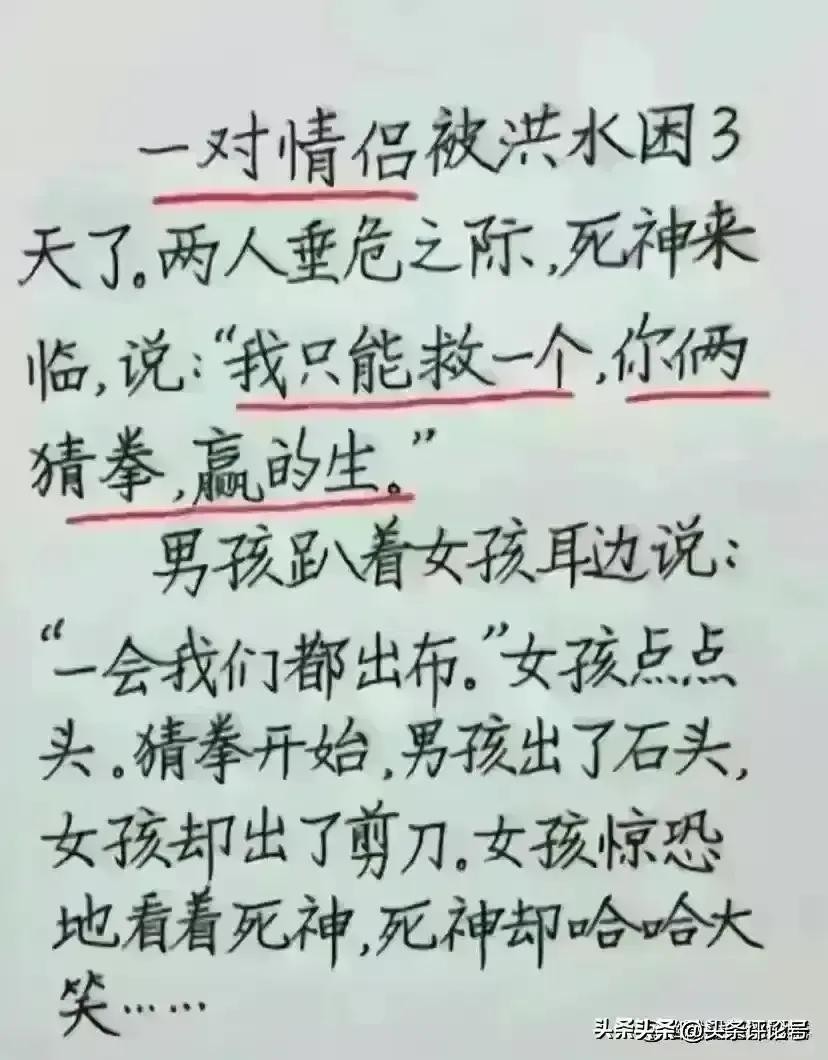 一对情侣被洪水困3
天了。两人垂危之际,死神来
临,说:“我只能救一个,你俩
猜拳,赢的生。”
男孩趴着女孩耳边说:
“一会我们都出布。”女孩点点
头。猜拳开始,男孩出了石头,
女孩却出了剪刀。女孩惊恐
地看着死神,死神却哈哈大
笑……
头条头条@头条评论号